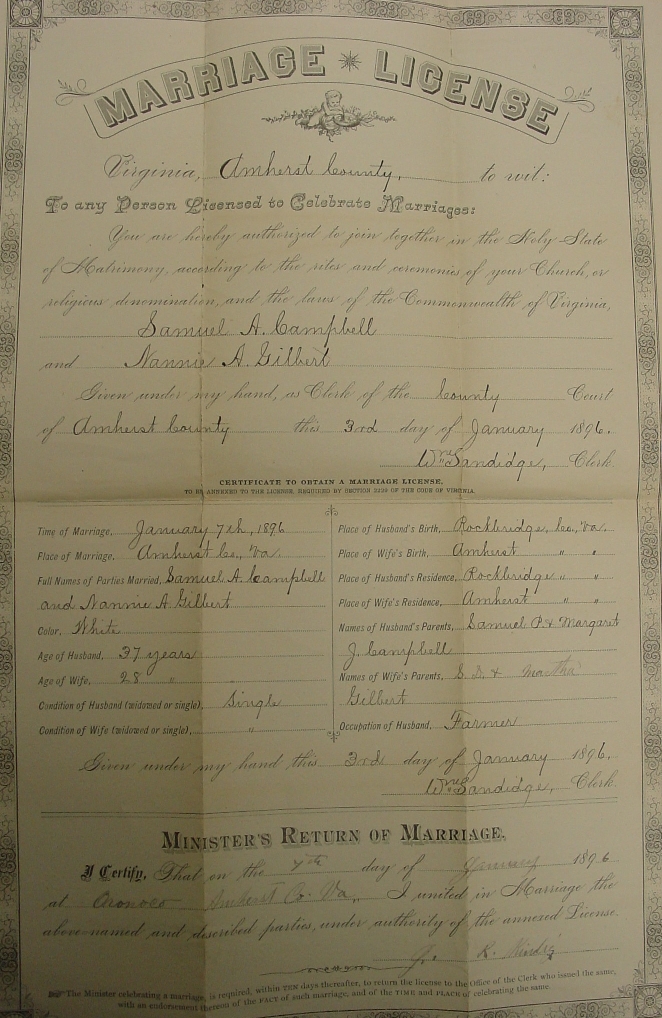 MARRIAGE LICENSE
Virginia, Amherst County, to wit:
To any Person Licensed to Celebrate Marriages:
You are hereby authorized to join together in the Holy State
of Matrimony, according to the rites and ceremonies of your Church, or
religious denomination, and the laws of the Commonwealth of Virginia,
Samuel A. Campbell
and Nannie A. Gilbert
Given under my hand, as Clerk of the County Court
of Amherst County this 3rd day of January 1896.
Wm Sandidge, Clerk.
CERTIFICATE TO OBTAIN A MARRIAGE LICENSE,
TO BE ANNEXED TO THE LICENSE, REQUIRED BY SECTION 2229 OF THE CODE OF VIRGINIA.
Time of Marriage, January 7th, 1896
Place of Marriage, Amherst Co., Va.
Full Names of Parties Married, Samuel A. Campbell
and Nannie A. Gilbert
Color, White
Age of Husband, 37 years
Age of Wife, 28 "
Condition of Husband (widowed or single), Single
Condition of Wife (widowed or single), "
Place of Husband's Birth, Rockbridge, Co., Va.
Place of Wife's Birth, Amherst " "
Place of Husband's Residence, Rockbridge " "
Place of Wife's Residence, Amherst " "
Names of Husband's Parents, Samuel P. & Margaret
J. Campbell
Names of Wife's Parents, S. D. & Martha
Gilbert
Occupation of Husband, Farmer
Given under my hand this 3rd day of January 1896.
Wm Sandidge, Clerk.
MINISTER'S RETURN OF MARRIAGE.
I Certify, That on the 7th day of January 1896
at Oronoco Amherst Co. Va., I united in Marriage the
above-named and described parties, under authority of the annexed License.
The Minister celebrating a marriage, is required, within TEN days thereafter, to return the license to the Office of the Clerk who issued the same,
with an endorsement thereon of the FACT of such marriage, and of the TIME and PLACE of celebrating the same.